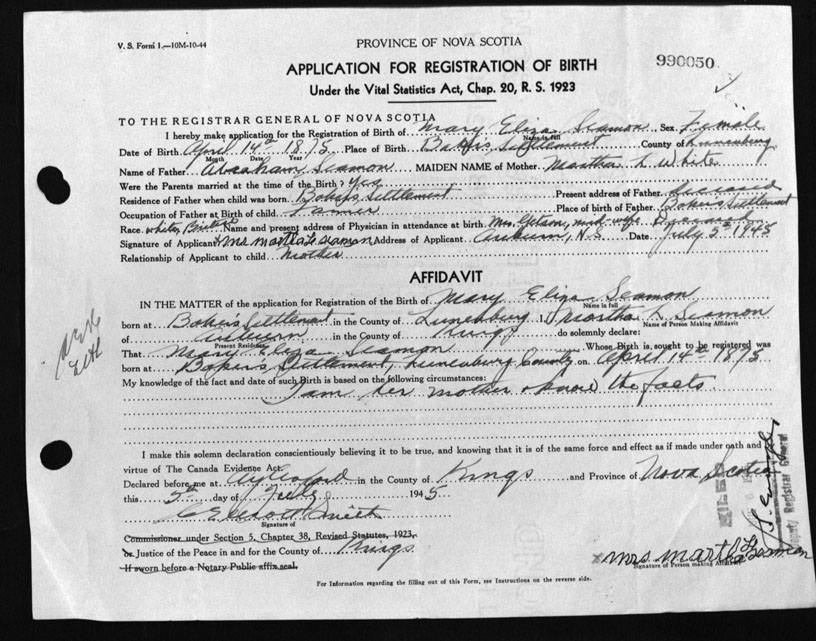 V. S. Form 1.—10M-10-44
PROVINCE OF NOVA SCOTIA
990050
APPLICATION FOR REGISTRATION OF BIRTH
Under the Vital Statistics Act, Chap. 20, R. S. 1923
TO THE REGISTRAR GENERAL OF NOVA SCOTIA
I hereby make application for the Registration of Birth of Mary Eliza Seamon Sex Female
Name in full
Date of Birth April 14th 1875 Place of Birth Bakers Settlement County of Lunenburg
Month Date Year
Name of Father Abraham Seamon MAIDEN NAME of Mother Martha L White
Were the Parents married at the time of the Birth? Yes
Residence of Father when child was born Bakers Settlement Present address of Father deceased
Occupation of Father at Birth of child Farmer Place of birth of Father Bakers Settlement
Race white, Name and present address of Physician in attendance at birth Mrs mid-wife
Signature of Applicant Mrs Martha L Seamon Address of Applicant Auburn, N.S Date July 5th 1945
Relationship of Applicant to child Mother
AFFIDAVIT
IN THE MATTER of the application for Registration of the Birth of Mary Eliza Seamon
Name in full
born at Bakers Settlement in the County of Lunenburg I, Martha L Seamon
Name of Person Making Affidavit
of Auburn in the County of Kings do solemnly declare:
Present Residence
That Mary Eliza Seamon Whose Birth is sought to be registered was
born at Bakers Settlement, Lunenburg County on April 14th 1875
My knowledge of the fact and date of such Birth is based on the following circumstances:
I am her mother & know the facts.
I make this solemn declaration conscientiously believing it to be true, and knowing that it is of the same force and effect as if made under oath and
virtue of The Canada Evidence Act.
Declared before me at Aylesford in the County of Kings and Province of Nova Scotia
this 5th day of July 1945
Elliott Smith
Signature of
Commissioner under Section 5, Chapter 38, Revised Statutes, 1923,
or Justice of the Peace in and for the County of Kings
If sworn before a Notary Public affix seal.
x Mrs Martha L Seaman
Signature of Person making Affidavit
For Information regarding the filling out of this Form, see Instructions on the reverse side.
FILED
Deputy Registrar General